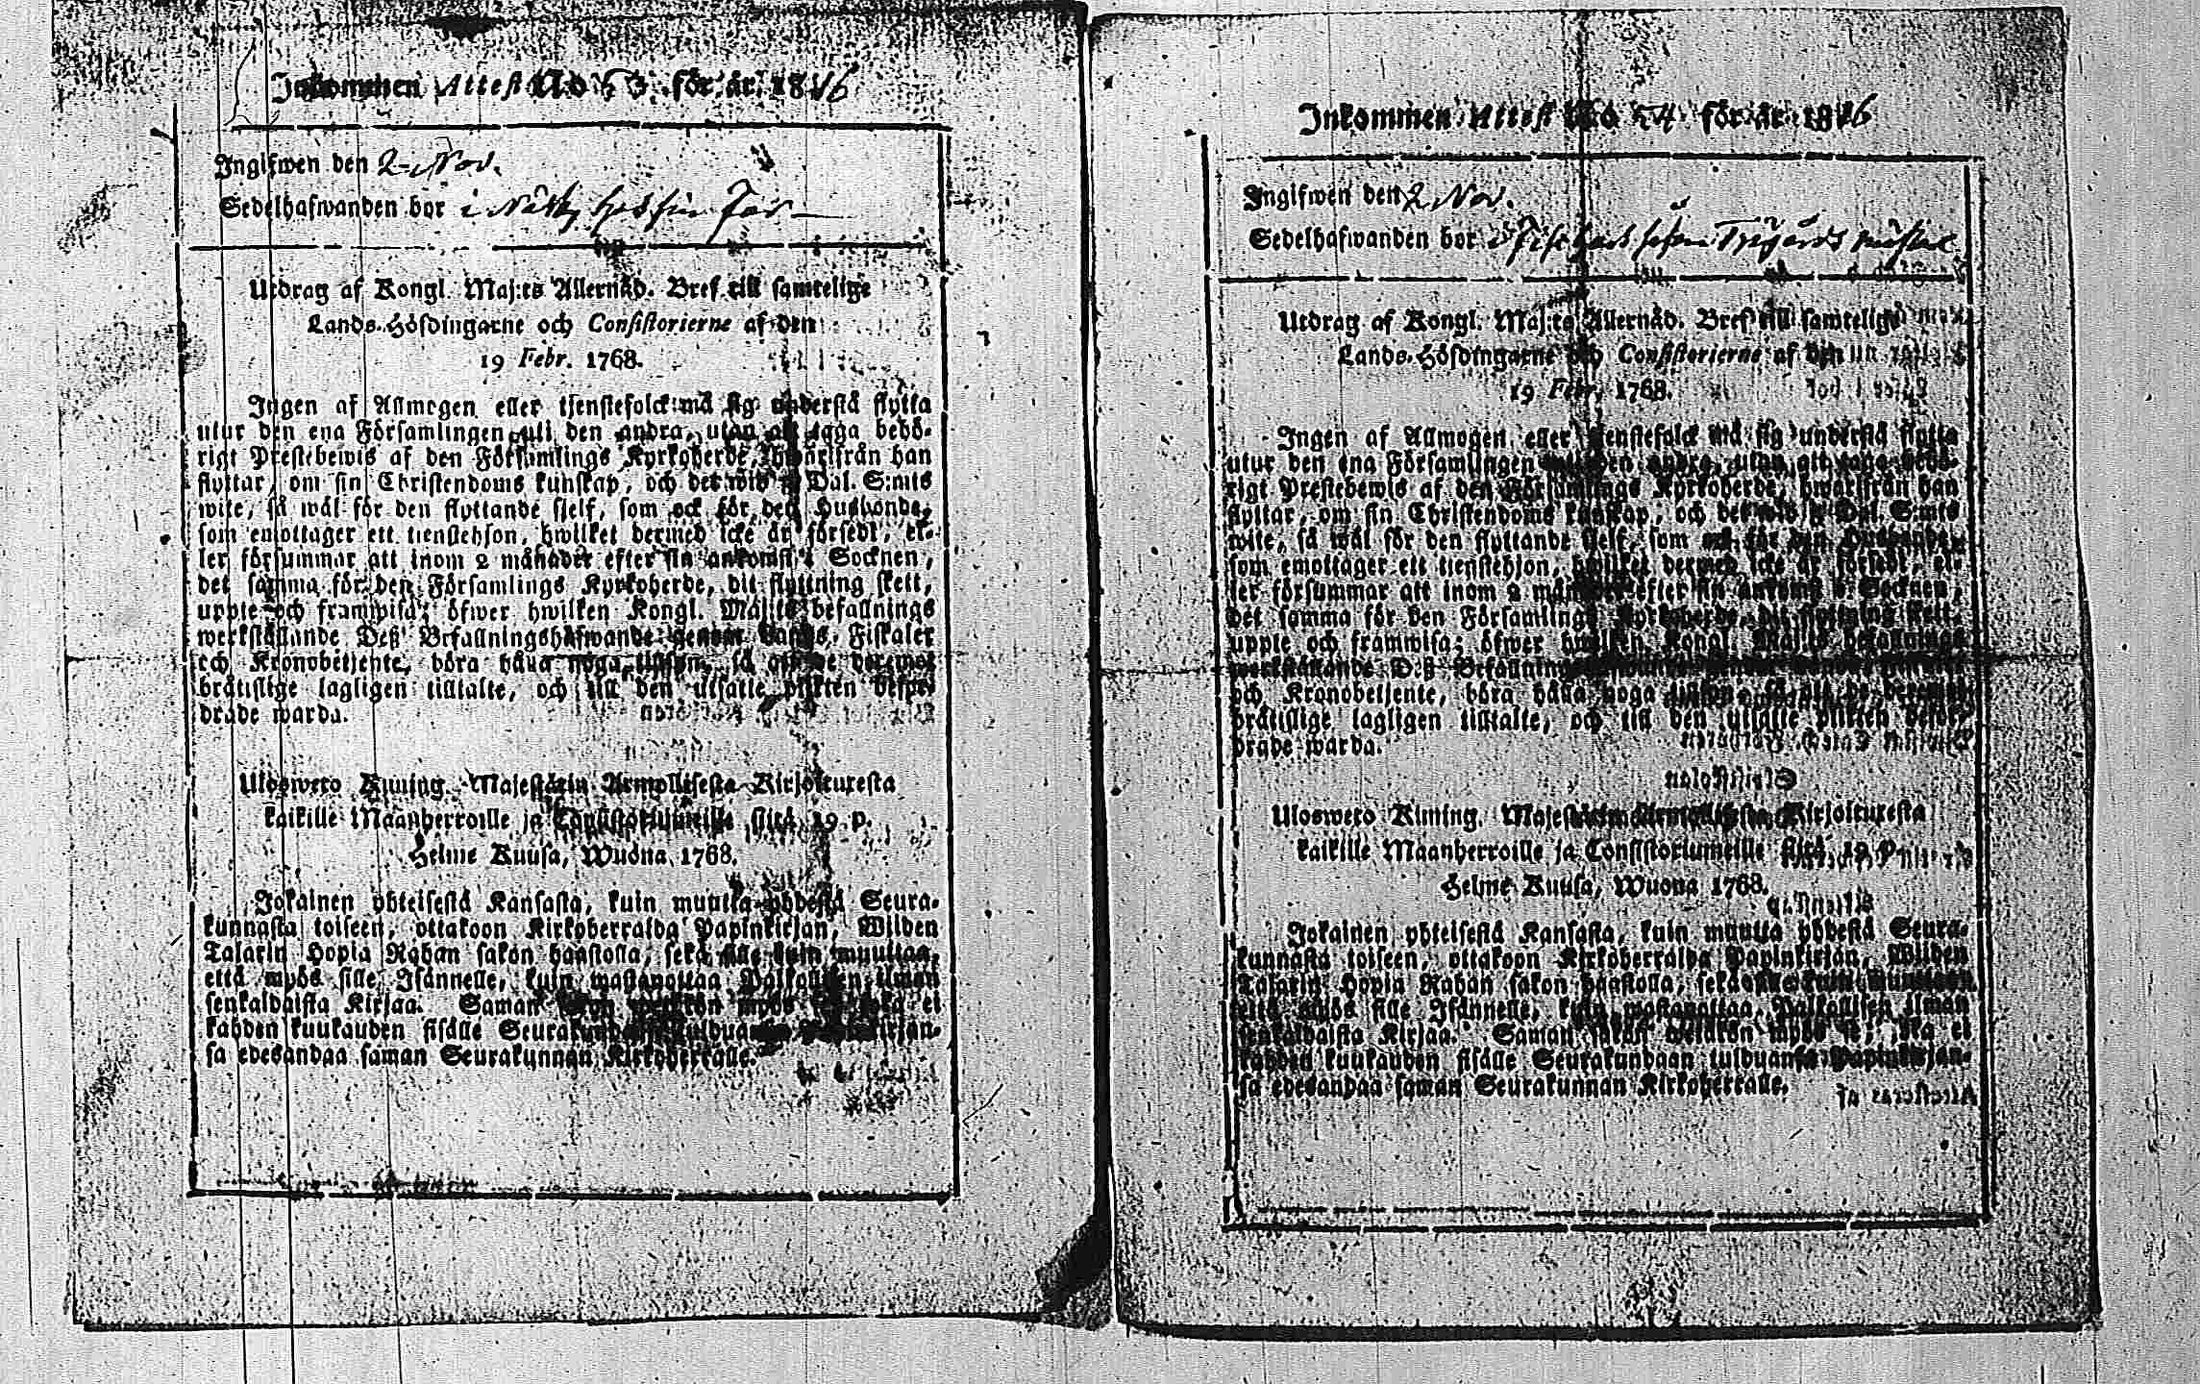 Inkommen Attest No 53 för år 1816
Ingifwen den 2 Nov.
Sedelhafwanden bor i Näsby hos sin Far
Utdrag af Kongl. Maj:ts Allernåd. Bref till samtelige
Lands-Höfdingarne och Consistorierne af den
19 Febr. 1768.
Ingen af Allmogen eller tjenstefolck må sig understå flytta
utur den ena Församlingen uti den andra, utan att taga behö-
rigt Prestebewis af den Församlings Kyrkoherde, hwarifrån han
flyttar, om sin Christendoms kunskap, och det wid 2 Dal. S:mts
wite, så wäl för den flyttande sjelf, som ock för den Husbonde,
som emottager ett tienstehjon, hwilket dermed icke är försedt, el-
ler försummar att inom 2 månader efter sin ankomst i Socknen,
det samma för den Församlings Kyrkoherde, dit flyttning skett,
uppte och framwisa; öfwer hwilken Kongl. Maj:ts befallnings
werkställande Deß Befallningshafwande genom Lands-Fiskaler
och Kronobetjente, böra hålla noga tilsyn, så att de deremot
bråtislige lagligen tilltalte, och till den utsatte plikten befor-
drade warda.
Uloswеto Kuning. Majestätin Armollisesta Kirjoituxesta
kaikille Maanherroille ja Consistoriumeille siitä 19 p.
Helme Kuusa, Wuona 1768.
Jokainen yhteisestä Kansasta, kuin muutta yhdestä Seura-
kunnasta toiseen, ottakoon Kirkoherralda Papinkirjan, Wiiden
Talarin Hopia Rahan sakon haastolla, sekä sille kuin muuttaa,
että myös sille Isännelle, kuin wastanottaa Palkollisen ilman
senkaldaista Kirjaa. Saman sakon wetäkön myös se, joka ei
kahden kuukauden sisälle Seurakundaan tulduansa Papinkirjan-
sa edesandaa saman Seurakunnan Kirkoherralle.
Inkommen Attest No 54 för år 1816
Ingifwen den 2 Nov.
Sedelhafwanden bor
Utdrag af Kongl. Maj:ts Allernåd. Bref till samtelige
Lands-Höfdingarne och Consistorierne af den
19 Febr. 1768.
Ingen af Allmogen eller tjenstefolck må sig understå flytta
utur den ena Församlingen uti den andra, utan att taga behö-
rigt Prestebewis af den Församlings Kyrkoherde, hwarifrån han
flyttar, om sin Christendoms kunskap, och det wid 2 Dal. S:mts
wite, så wäl för den flyttande sjelf, som ock för den Husbonde,
som emottager ett tienstehjon, hwilket dermed icke är försedt, el-
ler försummar att inom 2 månader efter sin ankomst i Socknen,
det samma för den Församlings Kyrkoherde, dit flyttning skett,
uppte och framwisa; öfwer hwilken Kongl. Maj:ts befallnings
werkställande Deß Befallningshafwande genom Lands-Fiskaler
och Kronobetjente, böra hålla noga tilsyn, så att de deremot
bråtislige lagligen tilltalte, och till den utsatte plikten befor-
drade warda.
Ulosweto Kuning. Majestätin Armollisesta Kirjoituxesta
kaikille Maanherroille ja Consistoriumeille siitä 19 p.
Helme Kuusa, Wuona 1768.
Jokainen yhteisestä Kansasta, kuin muutta yhdestä Seura-
kunnasta toiseen, ottakoon Kirkoherralda Papinkirjan, Wiiden
Talarin Hopia Rahan sakon haastolla, sekä sille kuin muuttaa,
että myös sille Isännelle, kuin wastanottaa Palkollisen ilman
senkaldaista Kirjaa. Saman sakon wetäkön myös se, joka ei
kahden kuukauden sisälle Seurakundaan tulduansa Papinkirjan-
sa edesandaa saman Seurakunnan Kirkoherralle.